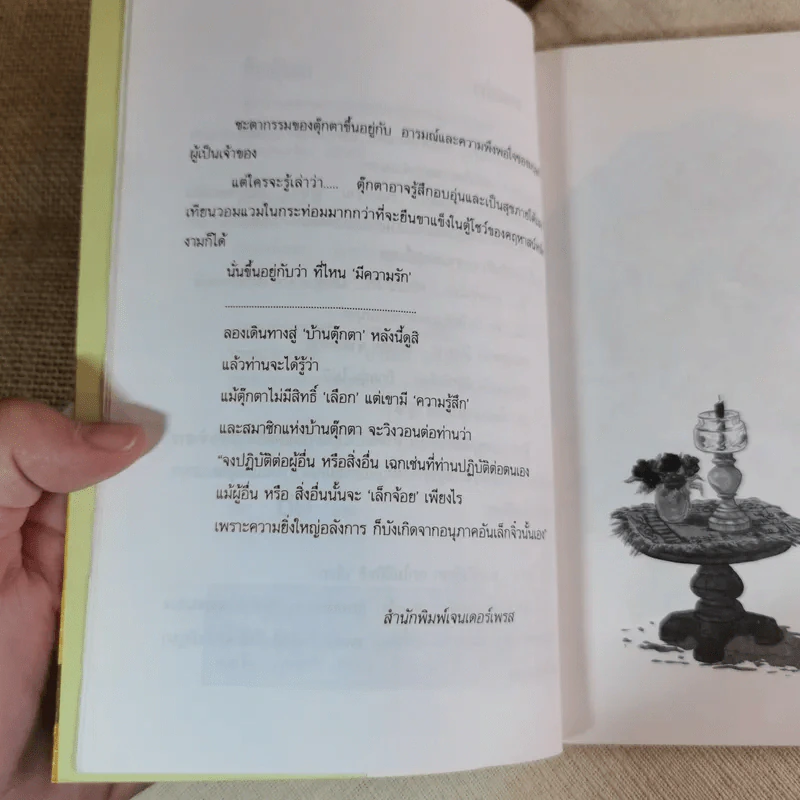 ชะตากรรมของตุ๊กตาขึ้นอยู่กับ อารมณ์และความพึงพอใจของ
ผู้เป็นเจ้าของ
แต่ใครจะรู้เล่าว่า..... ตุ๊กตาอาจรู้สึกอบอุ่นและเป็นสุขภายใต้
เทียนวอมแวมในกระท่อมมากกว่าที่จะยืนขาแข็งในตู้โชว์ของคฤหาสน์
งามก็ได้
นั่นขึ้นอยู่กับว่า ที่ไหน 'มีความรัก'
................................................................
ลองเดินทางสู่ 'บ้านตุ๊กตา' หลังนี้ดูสิ
แล้วท่านจะได้รู้ว่า
แม้ตุ๊กตาไม่มีสิทธิ์ 'เลือก' แต่เขามี 'ความรู้สึก'
และสมาชิกแห่งบ้านตุ๊กตา จะวิงวอนต่อท่านว่า
"จงปฏิบัติต่อผู้อื่น หรือสิ่งอื่น เฉกเช่นที่ท่านปฏิบัติต่อตนเอง
แม้ผู้อื่น หรือ สิ่งอื่นนั้นจะ 'เล็กจ้อย' เพียงไร
เพราะความยิ่งใหญ่อลังการ ก็บังเกิดจากอนุภาคอันเล็กจิ๋วนั้นเอง"
สำนักพิมพ์เจนเดอร์เพรส